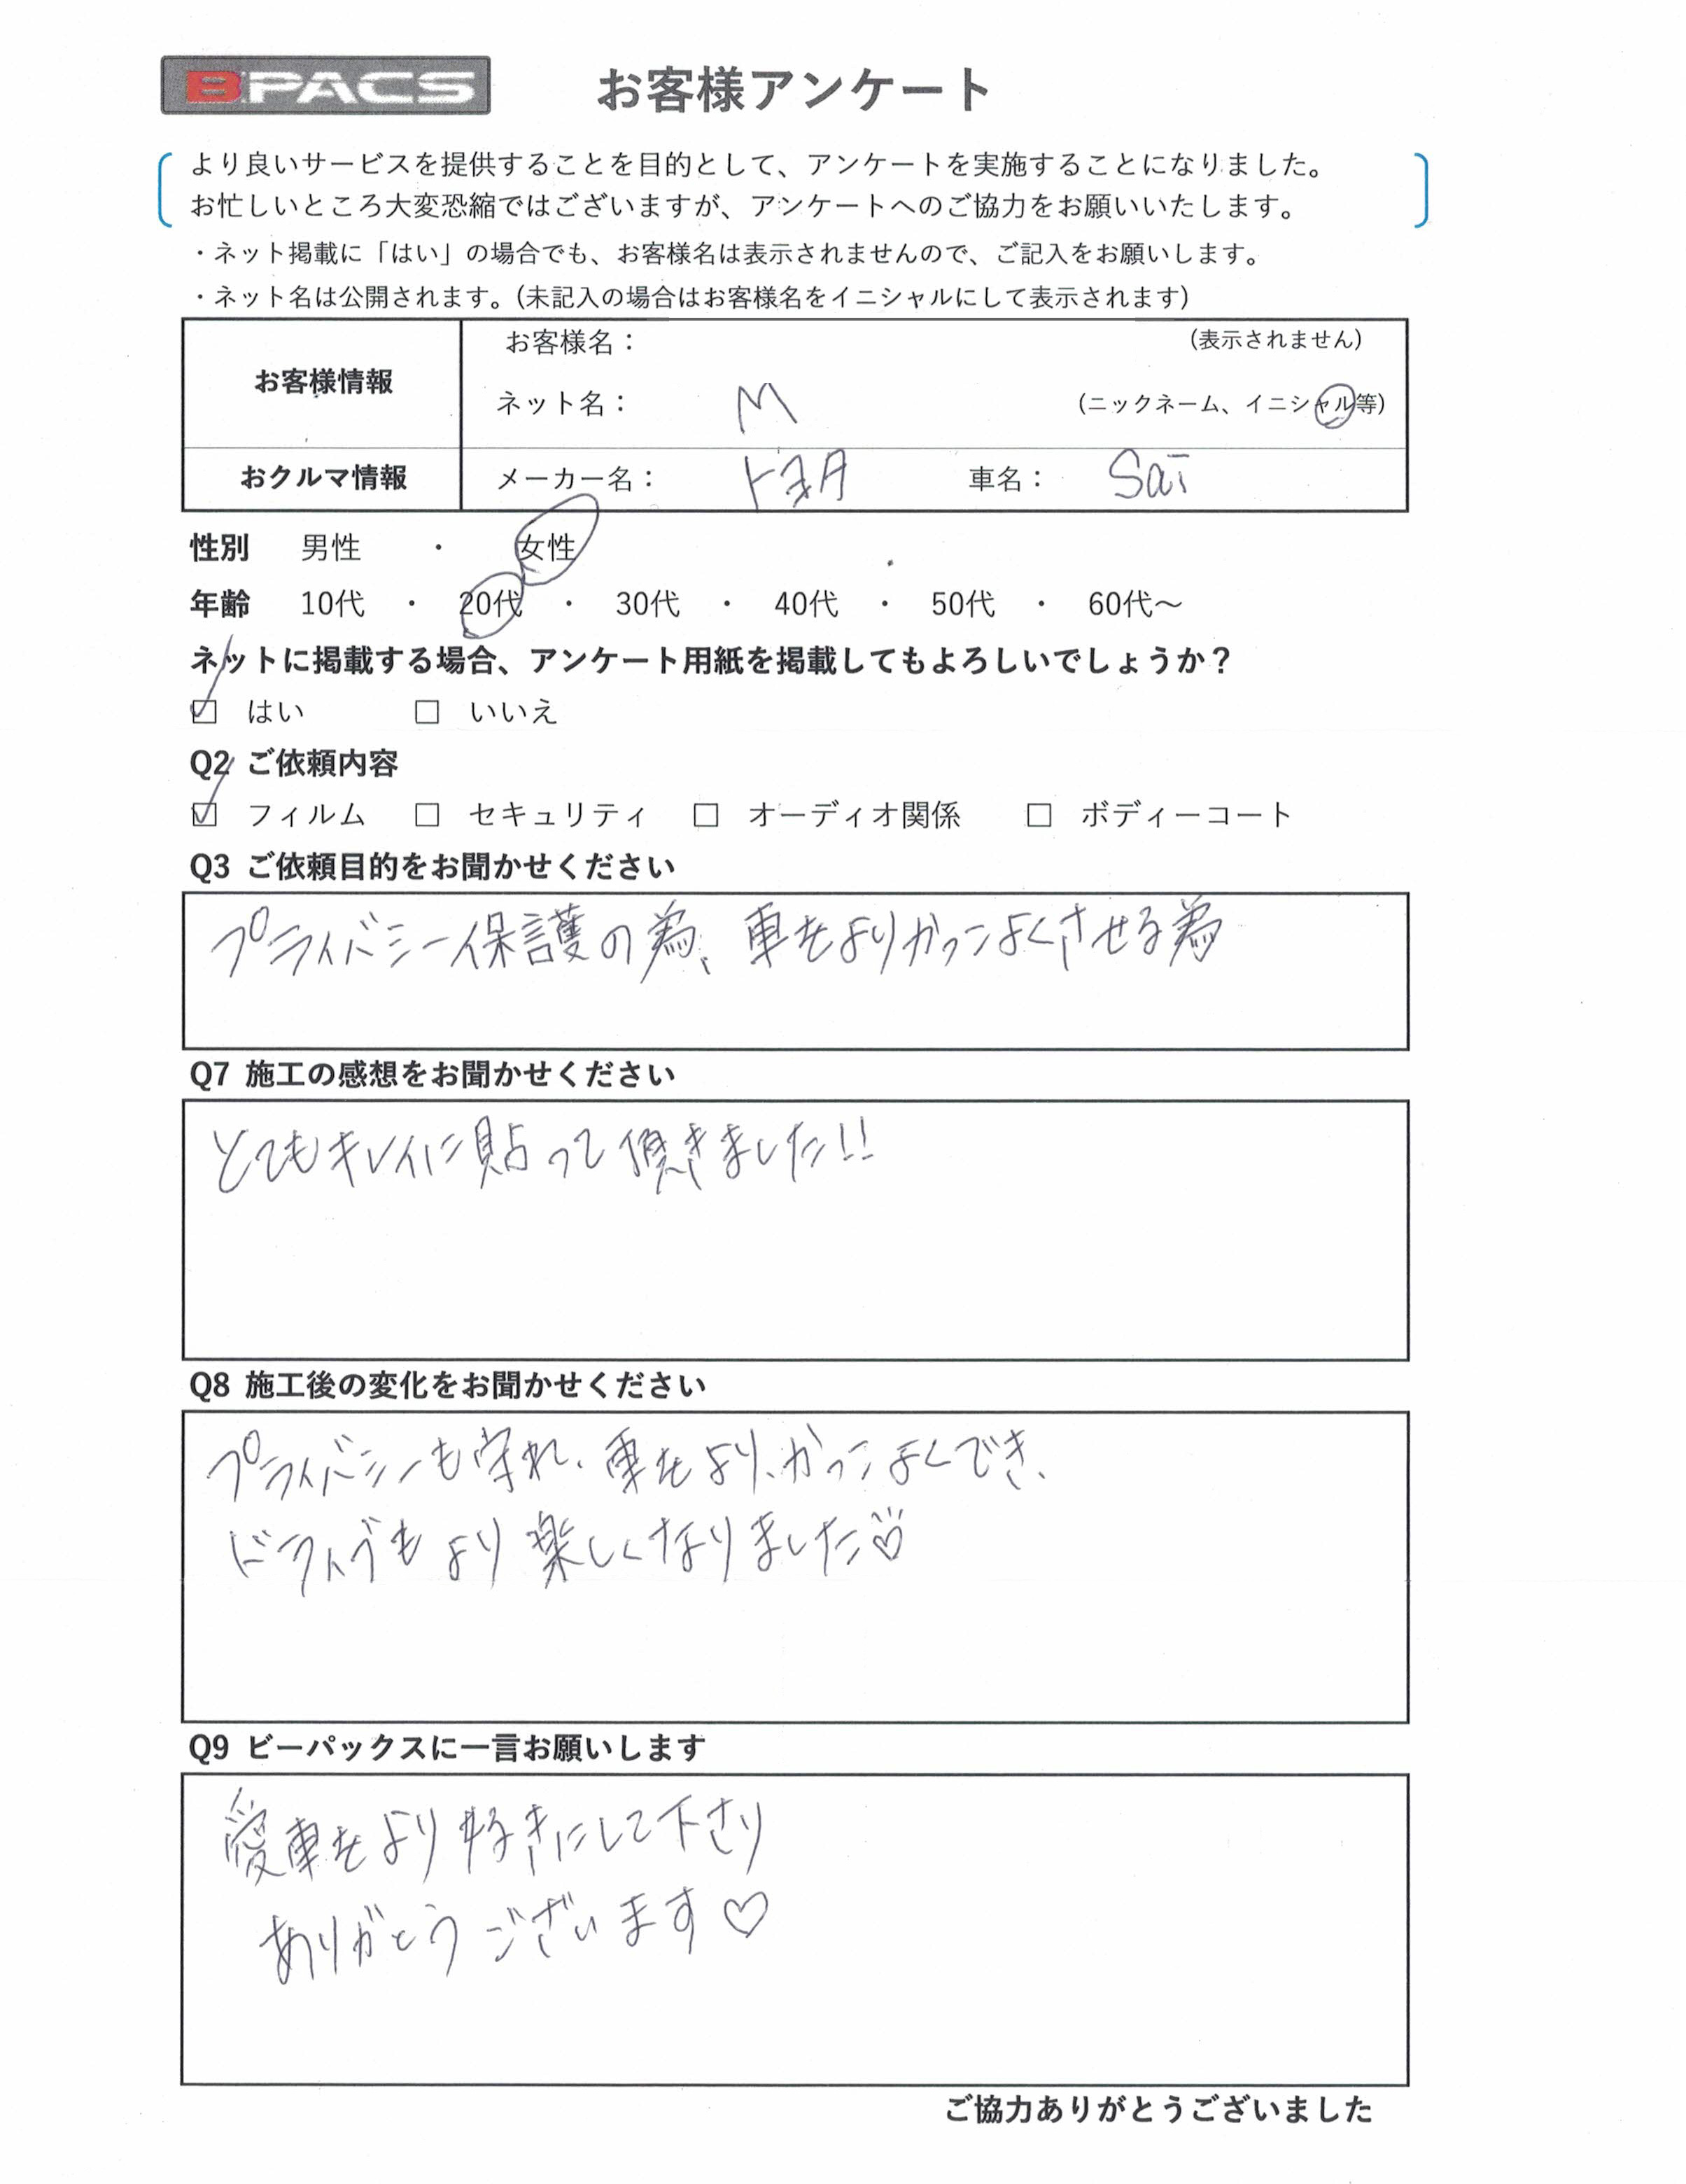 BPACS お客様アンケート
より良いサービスを提供することを目的として、アンケートを実施することになりました。
お忙しいところ大変恐縮ではございますが、アンケートへのご協力をお願いいたします。
・ネット掲載に「はい」の場合でも、お客様名は表示されませんので、ご記入をお願いします。
・ネット名は公開されます。(未記入の場合はお客様名をイニシャルにして表示されます)
お客様情報 お客様名： (表示されません)
ネット名： M (ニックネーム、イニシャル等)
おクルマ情報 メーカー名： トヨタ 車名： Sai
性別 男性 ・ 女性
年齢 10代 ・ 20代 ・ 30代 ・ 40代 ・ 50代 ・ 60代～
ネットに掲載する場合、アンケート用紙を掲載してもよろしいでしょうか？
☑ はい □ いいえ
Q2 ご依頼内容
☑ フィルム □ セキュリティ □ オーディオ関係 □ ボディーコート
Q3 ご依頼目的をお聞かせください
プライバシー保護の為、車をよりかっこよくさせる為
Q7 施工の感想をお聞かせください
とてもキレイに貼って頂きました!!
Q8 施工後の変化をお聞かせください
プライバシーも守れ、車をより、かっこよくでき、
ドライブもより楽しくなりました♡
Q9 ビーパックスに一言お願いします
愛車をより好きにして下さり
ありがとうございます♡
ご協力ありがとうございました